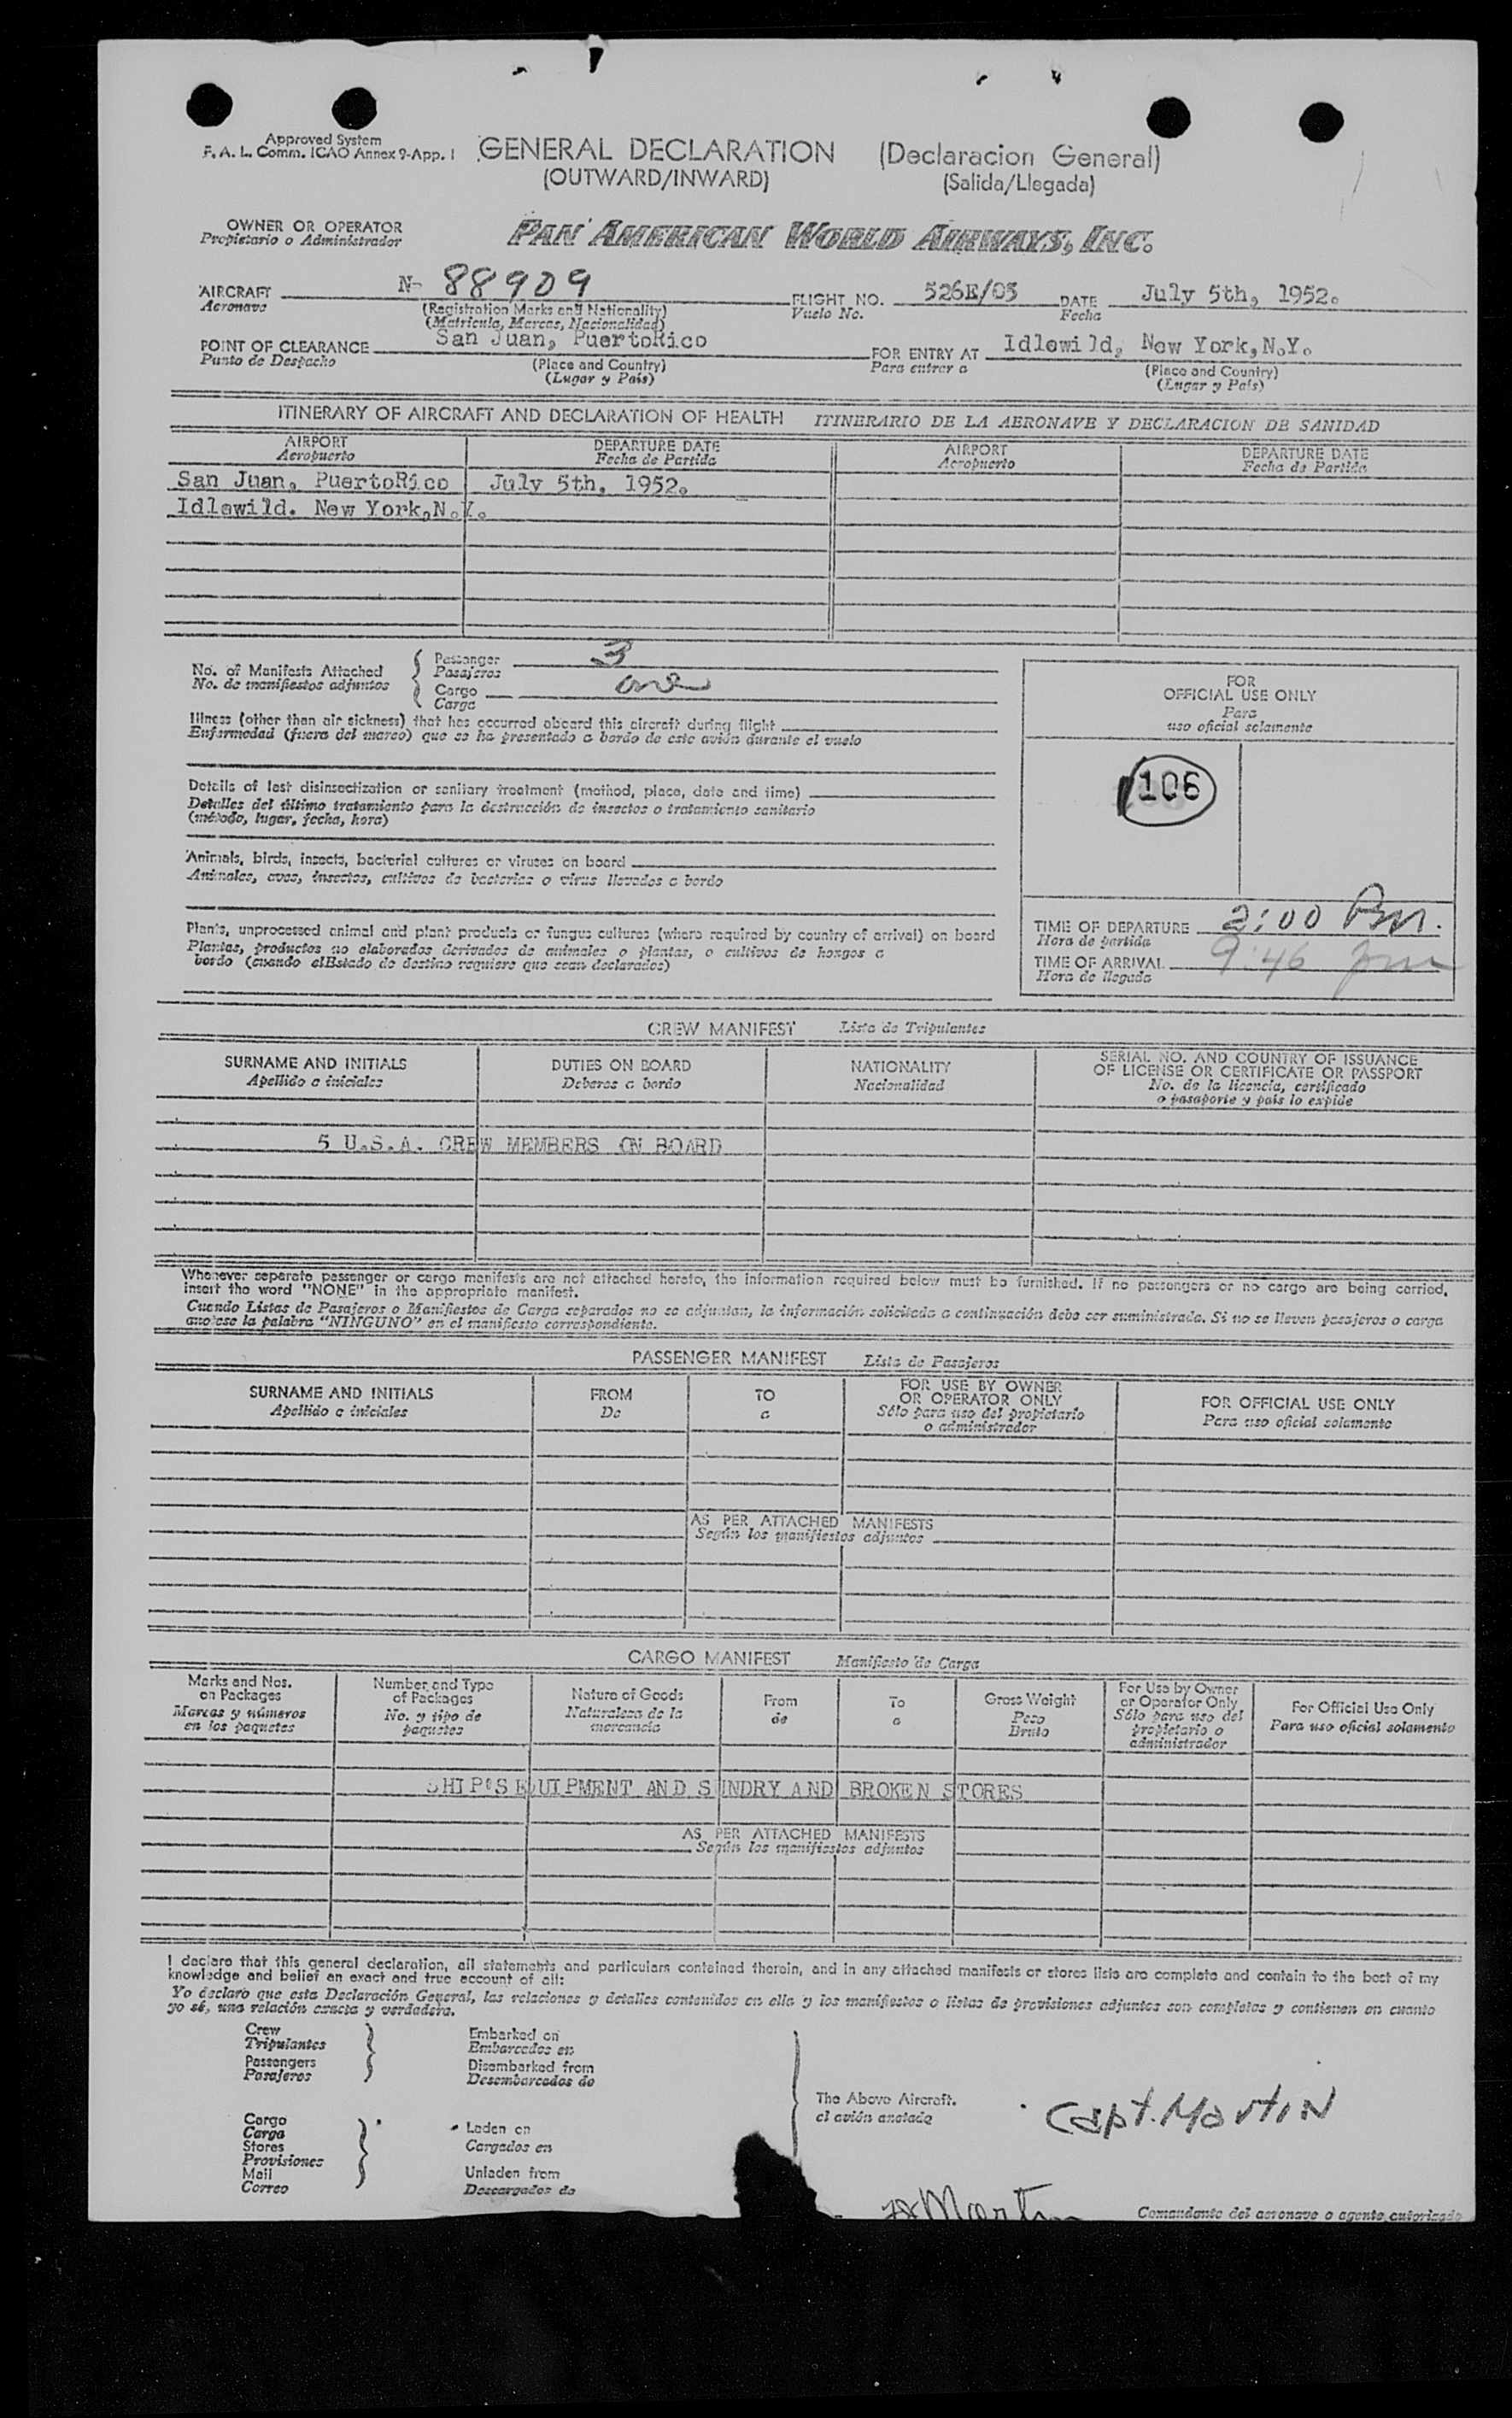 Approved System
F. A. L. Comm. ICAO Annex 9-App. I
GENERAL DECLARATION (Declaracion General)
(OUTWARD/INWARD) (Salida/Llegada)
OWNER OR OPERATOR
Propietario o Administrador
PAN AMERICAN WORLD AIRWAYS, INC.
AIRCRAFT N- 88909 FLIGHT NO. 526E/05 DATE July 5th, 1952.
Aeronave (Registration Marks and Nationality) Vuelo No. Fecha
(Matricula, Marcas, Nacionalidad)
POINT OF CLEARANCE San Juan, PuertoRico FOR ENTRY AT Idlewild, New York,N.Y.
Punto de Despacho (Place and Country) Para entrar a (Place and Country)
(Lugar y País) (Lugar y País)
ITINERARY OF AIRCRAFT AND DECLARATION OF HEALTH ITINERARIO DE LA AERONAVE Y DECLARACION DE SANIDAD
AIRPORT DEPARTURE DATE AIRPORT DEPARTURE DATE
Aeropuerto Fecha de Partida Aeropuerto Fecha de Partida
San Juan, PuertoRico July 5th, 1952.
Idlewild. New York,N.Y.
No. of Manifests Attached
No. de manifiestos adjuntos
Passenger 3
Pasajeros
Cargo one
Carga
Illness (other than air sickness) that has occurred aboard this aircraft during flight
Enfermedad (fuera del mareo) que se ha presentado a bordo de este avión durante el vuelo
Details of last disinsectization or sanitary treatment (method, place, date and time)
Detalles del último tratamiento para la destrucción de insectos o tratamiento sanitario
(método, lugar, fecha, hora)
Animals, birds, insects, bacterial cultures or viruses on board
Animales, aves, insectos, cultivos de bacterias o virus llevados a bordo
Plants, unprocessed animal and plant products or fungus cultures (where required by country of arrival) on board
Plantas, productos no elaborados derivados de animales o plantas, o cultivos de hongos a
bordo (cuando elEstado de destino requiere que sean declarados)
FOR
OFFICIAL USE ONLY
Para
uso oficial solamente
106
TIME OF DEPARTURE 2:00 Pm.
Hora de partida
TIME OF ARRIVAL 9:46 pm
Hora de llegada
CREW MANIFEST Lista de Tripulantes
SURNAME AND INITIALS DUTIES ON BOARD NATIONALITY SERIAL NO. AND COUNTRY OF ISSUANCE
Apellido e iniciales Deberes a bordo Nacionalidad OF LICENSE OR CERTIFICATE OR PASSPORT
No. de la licencia, certificado
o pasaporte y país lo expide
5 U.S.A. CREW MEMBERS ON BOARD
Whenever separate passenger or cargo manifests are not attached hereto, the information required below must be furnished. If no passengers or no cargo are being carried,
insert the word "NONE" in the appropriate manifest.
Cuando Listas de Pasajeros o Manifiestos de Carga separados no se adjuntan, la información solicitada a continuación debe ser suministrada. Si no se lleven pasajeros o carga
anotese la palabra "NINGUNO" en el manifiesto correspondiente.
PASSENGER MANIFEST Lista de Pasajeros
SURNAME AND INITIALS FROM TO FOR USE BY OWNER FOR OFFICIAL USE ONLY
Apellido e iniciales De a OR OPERATOR ONLY Para uso oficial solamente
Sólo para uso del propietario
o administrador
AS PER ATTACHED MANIFESTS
Según los manifiestos adjuntos
CARGO MANIFEST Manifiesto de Carga
Marks and Nos. Number and Type Nature of Goods From To Gross Weight For Use by Owner For Official Use Only
on Packages of Packages Naturaleza de la de a Peso or Operator Only Para uso oficial solamente
Marcas y números No. y tipo de mercancía Bruto Sólo para uso del
en los paquetes paquetes propietario o
administrador
SHIP'S EQUIPMENT AND SUNDRY AND BROKEN STORES
AS PER ATTACHED MANIFESTS
Según los manifiestos adjuntos
I declare that this general declaration, all statements and particulars contained therein, and in any attached manifests or stores lists are complete and contain to the best of my
knowledge and belief an exact and true account of all:
Yo declaro que esta Declaración General, las relaciones y detalles contenidos en ella y los manifiestos o listas de provisiones adjuntos son completas y contienen en cuanto
yo sé, una relación exacta y verdadera.
Crew Embarked on
Tripulantes Embarcados en
Passengers Disembarked from
Pasajeros Desembarcados de
The Above Aircraft.
el avión anotado
Capt. Martin
Cargo Laden on
Carga Cargados en
Stores
Provisiones
Mail Unladen from
Correo Descargados de
Martin
Comandante del aeronave o agente autorizado